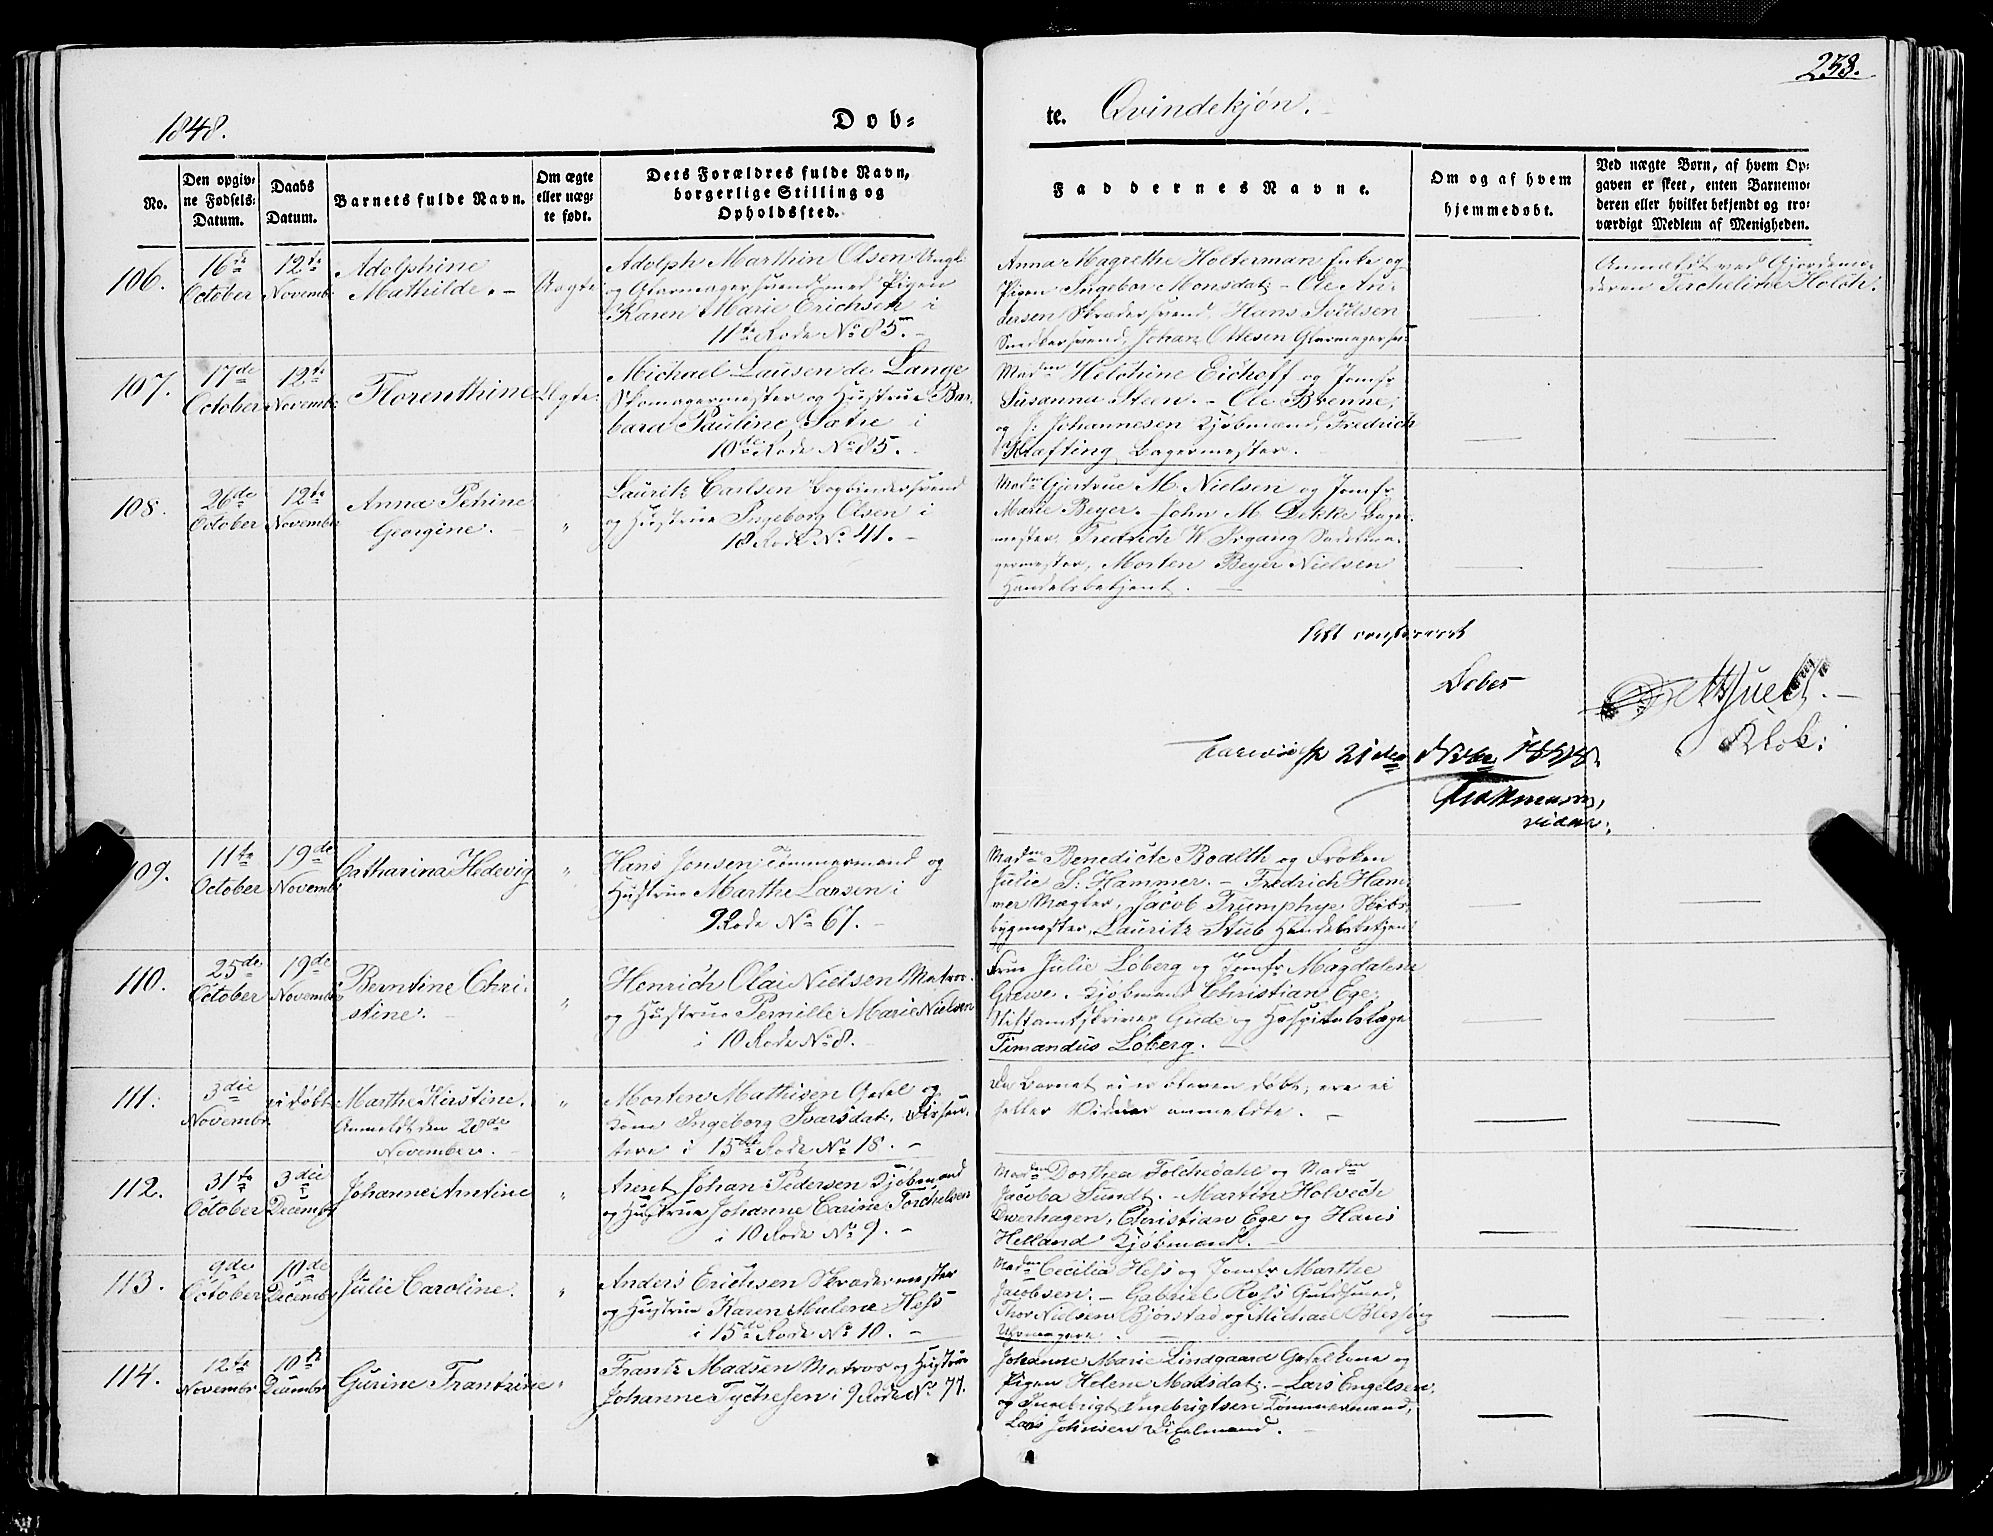 238.
1848.
Dob-
te. Qvindekjøn.
No.
Den opgiv-
ne Fødsels-
Datum.
Daabs
Datum.
Barnets fulde Navn.
Om ægte
eller uæg-
te født.
Dets Forældres fulde Navn,
borgerlige Stilling og
Opholdssted.
Faddernes Navne.
Om og af hvem
hjemmedøbt.
Ved uægte Børn, af hvem Op-
gaven er skeet, enten Barnemo-
deren eller hvilket bekjendt og tro-
værdigt Medlem af Menigheden.
106.
16de
October
12te
Novembr
Adolphine
Mathilde. –
Uægte
Adolph Marthin Olsen Ungk.
og Garmagersvend med Pigen
Karen Marie Erichsen i
11te Rode No 85. –
Anna Magrethe Holterman Enke og
Pigen Ingebor Monsdat: – Ole An-
dersen Skrædersvend, Hans Ivdtsen
Snedkersvend, Johan Ottesen Garmagersv.
Anmeldt ved Gjordemo-
deren Tercheline Holch.
107.
17de
October
12te
Novembr
Florenthine
Ægte
Michael Lausen de Lange
Skomagermester og Hustrue Bar-
bara Pauline Sætre i
10de Rode No 85. –
Madm Helchine Eichoff og Jomfr
Susanna Steen. – Ole Brenne,
og J: Johannesen Kjøbmænd, Fredrich
Krafting Bagermester.
108.
26de
October
12te
November
Anna Petrine
Georgine. –
"
Lauritz Carlsen Bogbindersvend
og Hustrue Ingeborg Olsen i
18 Rode No 41. –
Madm Gjertrue M. Nielsen og Jomfr
Marie Beyer. – John M. Dekke Bager-
mester, Fredrich W Irgang Sadelma-
germester, Morten Beyer Nielsen
Handelsbetjent. –
Klok:
21de Novbr 1848.
109.
11te
October
19de
Novembr
Catharina Hedevig
"
Hans Jonsen Tømmermand og
Hustrue Marthe Larsen i
9 Rode No 67. –
Madm Benedicte Boalth og Frøken
Julie S: Hammer. – Fredrich Ham-
mer Mægler, Jacob Trumphye Skibs-
bygmester, Lauritz Stub Handelsbetjent
110.
25de
October
19de
November
Berntine Chri-
stine. –
"
Henrich Olai Nielsen Matros
og Hustrue Pernille Marie Nielsen
i 10 Rode No 8. –
Frue Julie Løberg og Jomfr Magdalene
Greve. Kjøbmand Christian Ege,
Stiftamtskriver Gude og Hospitalslæge
Timandus Løberg. –
111.
3die
Novembr
ei døbt
Marthe Kirstine.
Anmeldt den 20de
November. –
"
Morten Mathisen Gesel og
Kone Ingeborg Ivarsdat: Dissen-
tere i 15de Rode No 18. –
Da Barnet ei er bleven døbt, ere ei
heller Vidner anmeldte. –
112.
31te
October
3die
Decembr
Johanne Arntine
"
Arent Johan Pedersen Kjøbmand
og Hustrue Johanne Carine Torchelsen
i 10 Rode No 9. –
Madm Dorthea Folchedahl og Madm
Jacoba Sundt. – Martin Holvech
Dverhagen, Christian Ege og Hans
Helland Kjøbmænd.
113.
9de
October
10de
Decembr
Julie Caroline.
"
Anders Erichsen Skrædermester
og Hustrue Karen Malene Hess
i 15de Rode No 10. –
Madm Cecilia Hess og Jomfr Marthe
Jacobsen. – Gabriel Ross Guldsmed,
Thor Nielsen Bjørstad og Michael Blessing
Uhrmagere. –
114.
12te
Novembr
10de
Decembr
Gurine Frantzine
"
Frantz Madsen Matros og Hustrue
Johanne Tychesen i 9 Rode No 77.
Johanne Marie Lindgaard Gesel Kone og
Pigen Helene Madsdat: – Lars Engelsen,
og Ingebrigt Ingebrigtsen Tømmermænd,
Lars Johnsen Dixelmand.